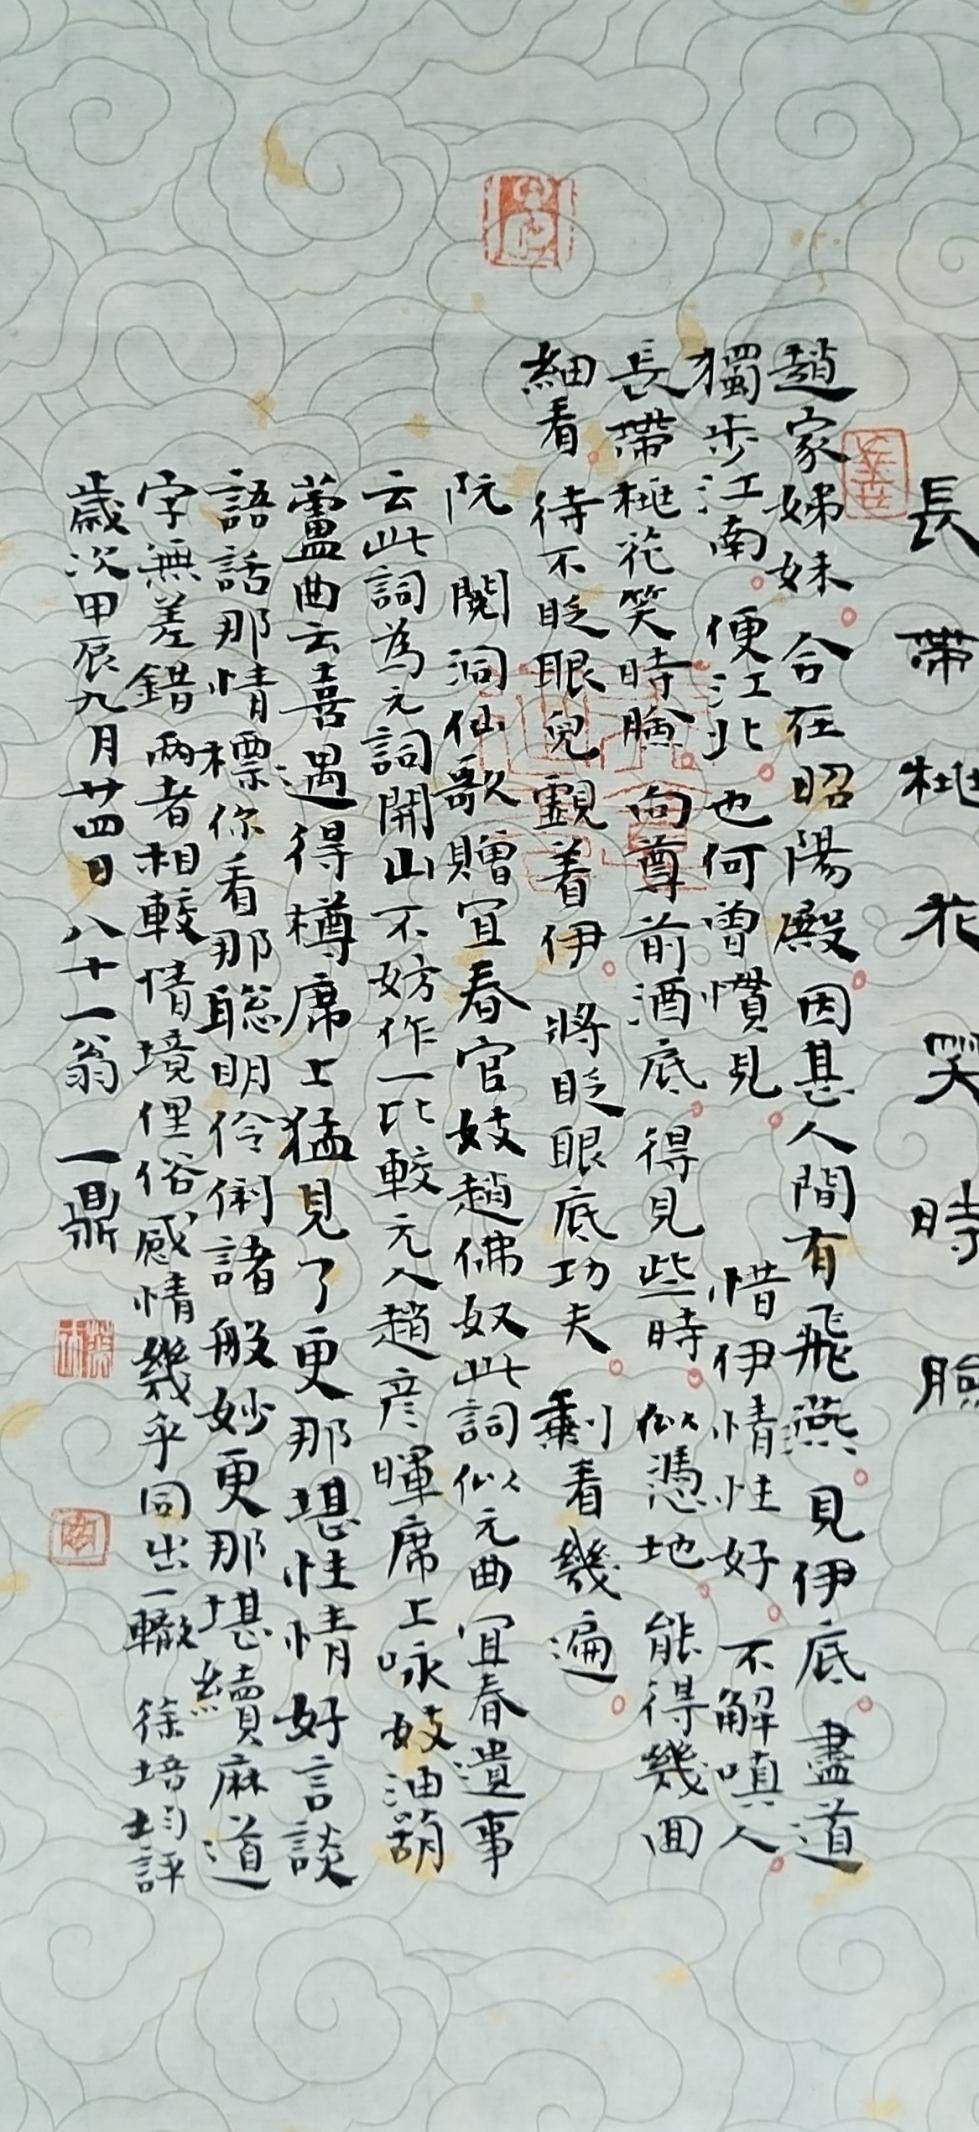 長帶桃花笑時臉
趙家姊妹合在昭陽殿因甚人間有飛燕見伊底盡道
獨步江南便江北也何曾慣見惜伊情性好不解嗔人
長帶桃花笑時臉向尊前酒底得見些時似憑地能得幾回
細看待不眨眼兒覷着伊將眨眼底功夫剩看幾遍
阮閱洞仙歌贈宜春官妓趙佛奴此詞似元曲宜春遺事
云此詞為元詞開山不妨作一比較元人趙彥暉席上咏妓油葫
蘆曲云喜遇得樽席上猛見了更那堪性情好言談
語話那情標你看那聰明伶俐諸般妙更那堪續麻道
字無差錯兩者相較情境俚俗感情幾乎同出一轍徐培均評
歲次甲辰九月廿四日八十一翁一鼎